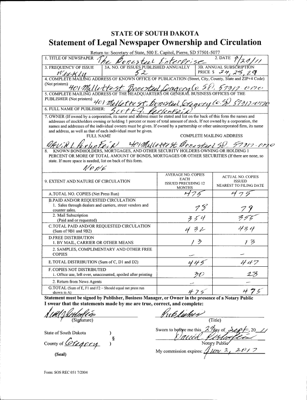 STATE OF SOUTH DAKOTA
Statement of Legal Newspaper Ownership and Circulation
Return to: Secretary of State, 500 E. Capitol, Pierre, SD 57501-5077
1. TITLE OF NEWSPAPER The Bonesteel Enterprise 2. DATE 9/20/11
3. FREQUENCY OF ISSUE Weekly 3A. NO. OF ISSUES PUBLISHED ANNUALLY 52 3B. ANNUAL SUBSCRIPTION PRICE $
4. COMPLETE MAILING ADDRESS OF KNOWN OFFICE OF PUBLICATION (Street, City, County, State and ZIP+4 Code)
(Not printers)
5. COMPLETE MAILING ADDRESS OF THE HEADQUARTERS OR GENERAL BUSINESS OFFICES OF THE
PUBLISHER (Not printers)
6. FULL NAME OF PUBLISHER:
7. OWNER (If owned by a corporation, its name and address must be stated and list on the back of this form the names and
addresses of stockholders owning or holding 1 percent or more of total amount of stock. If not owned by a corporation, the
names and addresses of the individual owners must be given. If owned by a partnership or other unincorporated firm, its name
and address, as well as that of each individual must be given.
FULL NAME COMPLETE MAILING ADDRESS
8. KNOWN BONDHOLDERS, MORTGAGEES, AND OTHER SECURITY HOLDERS OWNING OR HOLDING 1
PERCENT OR MORE OF TOTAL AMOUNT OF BONDS, MORTGAGES OR OTHER SECURITIES (If there are none, so
state. If more space is needed, list on back of this form.
None
9. EXTENT AND NATURE OF CIRCULATION
AVERAGE NO. COPIES EACH ISSUED PRECEDING 12 MONTHS
ACTUAL NO. COPIES ISSUED NEAREST TO FILING DATE
A. TOTAL NO. COPIES (Net Press Run) 475 475
B. PAID AND/OR REQUESTED CIRCULATION
1. Sales through dealers and carriers, street vendors and
counter sales. 78 79
2. Mail Subscription
(Paid and/or requested) 354 355
C. TOTAL PAID AND/OR REQUESTED CIRCULATION
(Sum of 9B1 and 9B2) 432 434
D. FREE DISTRIBUTION
1. BY MAIL, CARRIER OR OTHER MEANS 13 13
2. SAMPLES, COMPLIMENTARY AND OTHER FREE
COPIES
E. TOTAL DISTRIBUTION (Sum of C, D1 and D2) 445 447
F. COPIES NOT DISTRIBUTED
1. Office use, left over, unaccounted, spoiled after printing 30 28
2. Return from News Agents
G. TOTAL (Sum of E, F1 and F2 - Should equal net press run
shown in A) 475 475
Statement must be signed by Publisher, Business Manager, or Owner in the presence of a Notary Public
I swear that the statements made by me are true, correct, and complete:
Publisher
(Signature) (Title)
State of South Dakota )
§
County of Gregory )
Sworn to before me this
Notary Public
(Seal)
My commission expires:
Form: SOS REC 051 7/2004